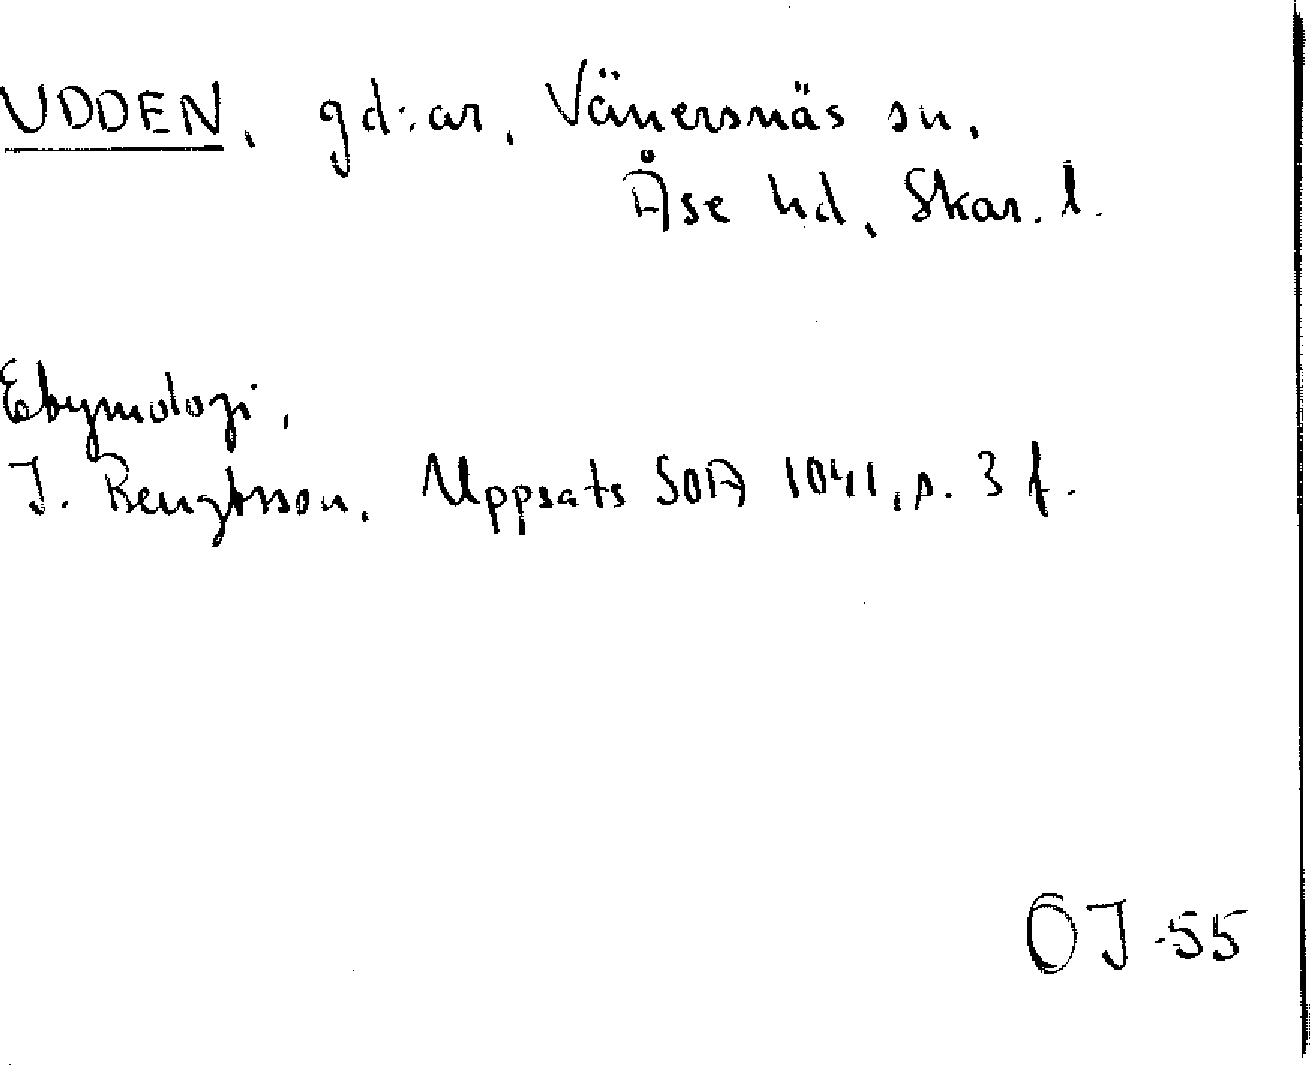 UDDEN, gd:ar, Vänersnäs sn,
Åse hd, Skar. l.
Etymologi,
J. Bengtsson, Uppsats SOA 1041, s. 3 f.
OJ -55